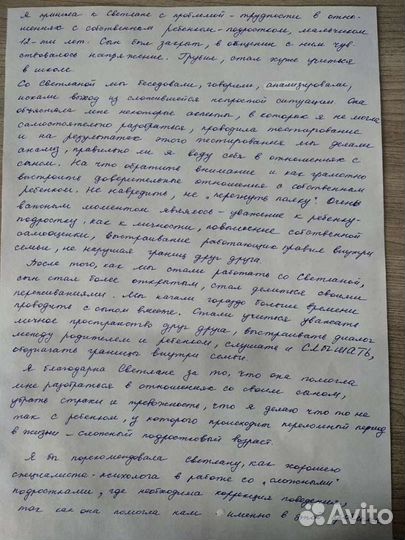 Я пришла к Светлане с проблемой - трудности в отно-
шениях с собственным ребёнком-подростком, мальчиком
12-ти лет. Сын был зажат, в общении с ним чув-
ствовалось напряжение. Грубил, стал хуже учиться
в школе.
Со Светланой мы беседовали, говорили, анализировали,
искали выход из сложившейся непростой ситуации. Она
объясняла мне некоторые аспекты, в которых я не могла
самостоятельно разобраться, проводила тестирование
и на результатах этого тестирования мы делали
анализ, правильно ли я веду себя в отношениях с
сыном. На что обратить внимание и как грамотно
выстроить доверительные отношения с собственным
ребёнком. Не навредить, не "перегнуть палку". Очень
важным моментом являлось - уважение к ребёнку-
подростку, как к личности, повышение собственной
самооценки, выстраивание работающих правил внутри
семьи, не нарушая границ друг друга.
После того, как мы стали работать со Светланой,
сын стал более открытым, стал делиться своими
переживаниями. Мы начали гораздо больше времени
проводить с сыном вместе. Стали учиться уважать
личное пространство друг друга, выстраивать диалог
между родителем и ребёнком, слушать и СЛЫШАТЬ,
обозначать границы внутри семьи.
Я благодарна Светлане за то, что она помогла
мне разобраться в отношениях со своим сыном,
убрать страхи и тревожность, что я делаю что-то не
так с ребёнком, у которого происходит переломный период
в жизни - сложный подростковый возраст.
Я бы порекомендовала Светлану, как хорошего
специалиста-психолога в работе со "сложными"
подростками, где необходима коррекция поведения,
так как она помогла нам именно в
Avito